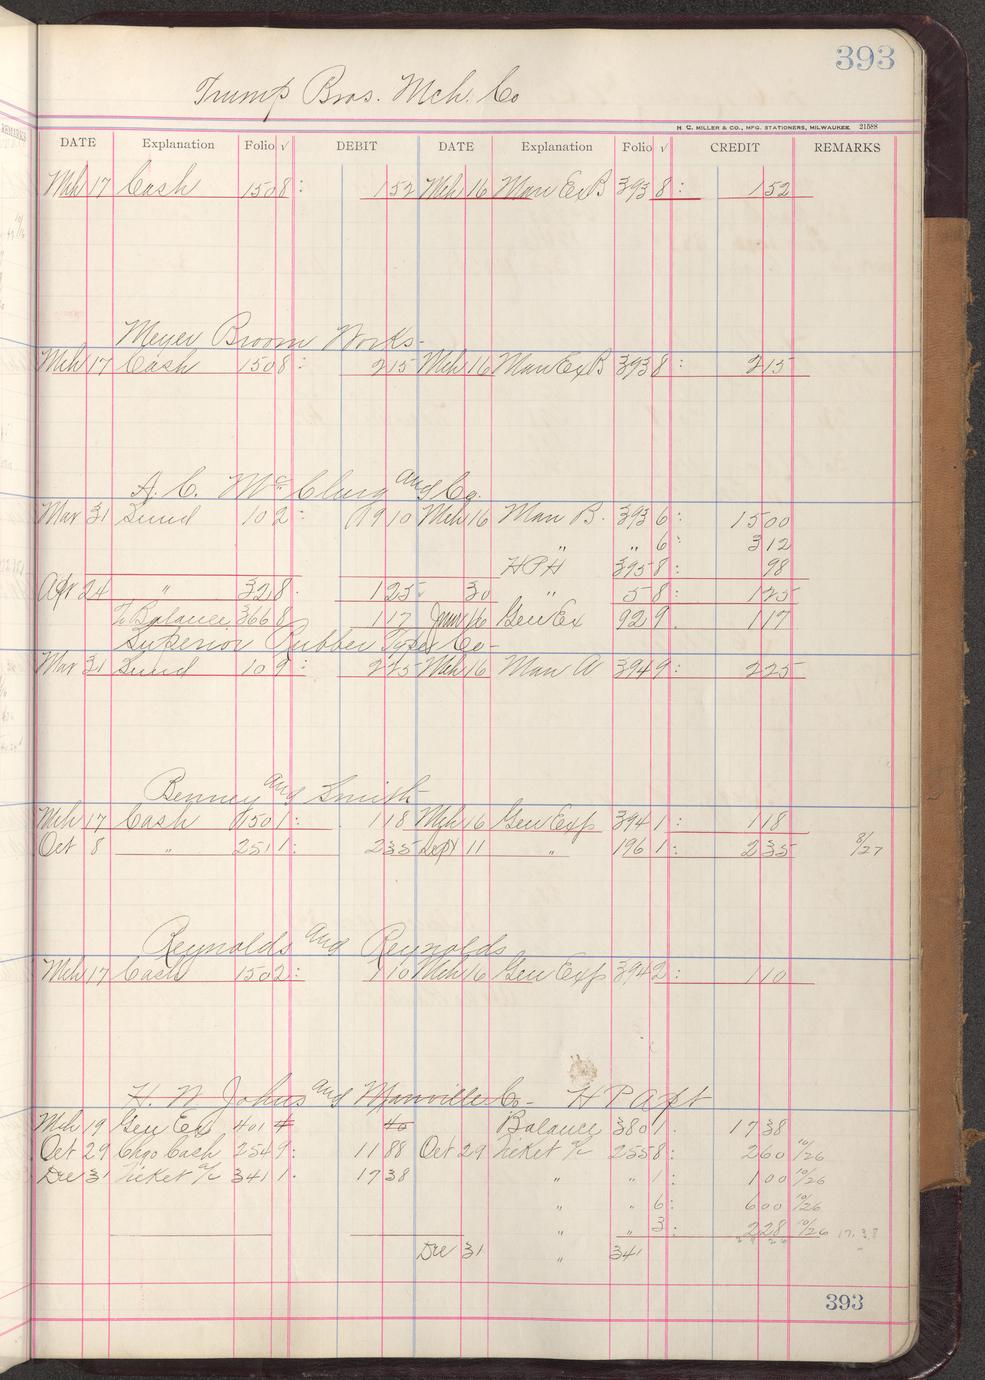 393
Trump Bros. Mch. Co
H. C. MILLER & CO., MFG. STATIONERS, MILWAUKEE. 21588
DATE Explanation Folio √ DEBIT DATE Explanation Folio √ CREDIT REMARKS
Mch 17 Cash 150 8: 1 52 Mch 16 Man Ex B 393 8: 1 52
Meyer Broom Works-
Mch 17 Cash 150 8: 2 15 Mch 16 Man Ex B 393 8: 2 15
A. C. McClurg and Co.
Mar 31 Sund 10 2: 19 10 Mch 16 Man B. 393 6: 15 00
" " 6: 3 12
HPH 395 8: 98
Apr 24 " 32 8. 1 25 30 " 5 8: 1 25
To Balance 366 8 1 17 June 16 Gen Ex 92 9. 1 17
Superior Rubber Type Co-
Mar 31 Sund 10 9: 2 25 Mch 16 Man A 394 9: 2 25
Benney and Smith
Mch 17 Cash 150 1: 1 18 Mch 16 Gen Exp 394 1: 1 18
Oct 8 " 251 1: 2 35 Sept 11 " 196 1: 2 35 8/27
Reynolds and Reynolds
Mch 17 Cash 150 2: 1 10 Mch 16 Gen Exp 394 2: 1 10
H. W. Johns and Manville Co- H P Apt
Mch 19 Gen Ex 401 4 40 Balance 380 1. 17 38
Oct 29 Chgo Cash 254 9: 11 88 Oct 29 Ticket a/c 255 8: 2 60 10/26
Dec 31 Ticket a/c 341 1. 17 38 " " 1: 1 00 10/26
" " 6: 6 00 10/26
" " 3: 2 28 10/26 17.38
Dec 31 " 341
393